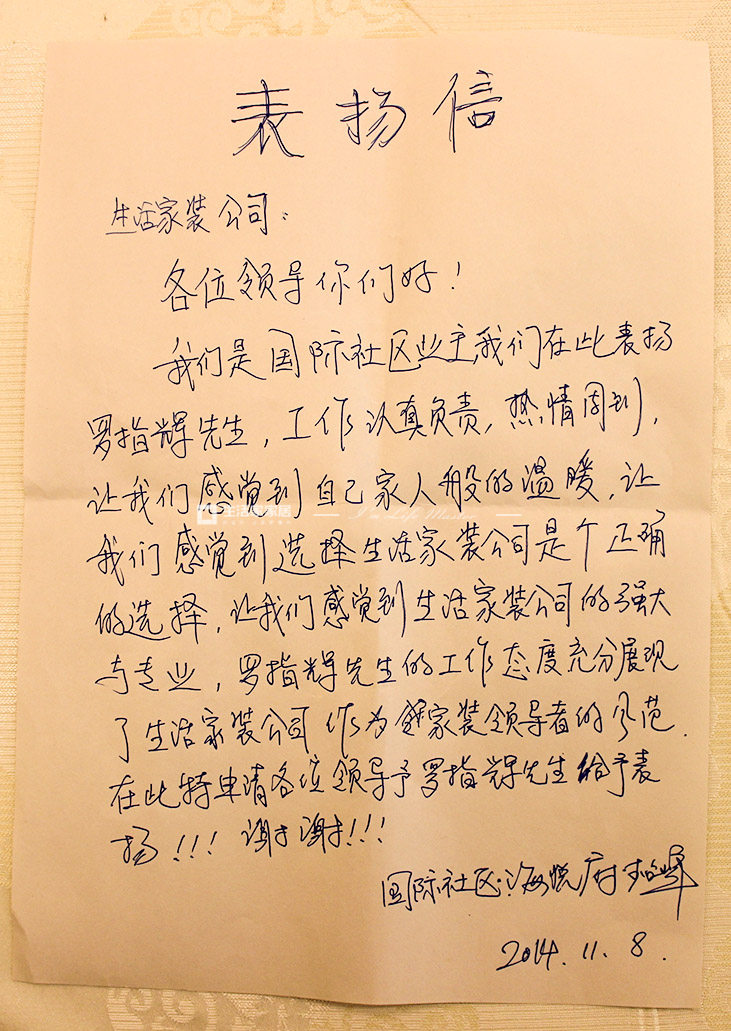 表扬信
生活家装公司：
各位领导你们好！
我们是国际社区业主我们在此表扬
罗指辉先生，工作认真负责，热情周到，
让我们感觉到自己家人般的温暖，让
我们感觉到选择生活家装公司是个正确
的选择，让我们感觉到生活家装公司的强大
与专业，罗指辉先生的工作态度充分展现
了生活家装公司作为家装领导者的风范.
在此特申请各位领导予罗指辉先生给予表
扬！！！谢谢！！！
国际社区：海悦府
2014.11.8.
生活家家居